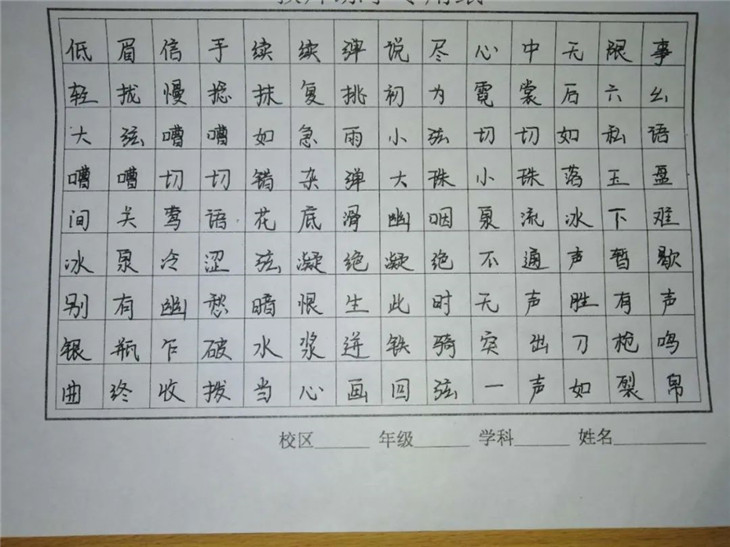 低眉信手续续弹说尽心中无限事
轻拢慢捻抹复挑初为霓裳后六幺
大弦嘈嘈如急雨小弦切切如私语
嘈嘈切切错杂弹大珠小珠落玉盘
间关莺语花底滑幽咽泉流冰下难
冰泉冷涩弦凝绝凝绝不通声暂歇
别有幽愁暗恨生此时无声胜有声
银瓶乍破水浆迸铁骑突出刀枪鸣
曲终收拨当心画四弦一声如裂帛
校区 年级 学科 姓名